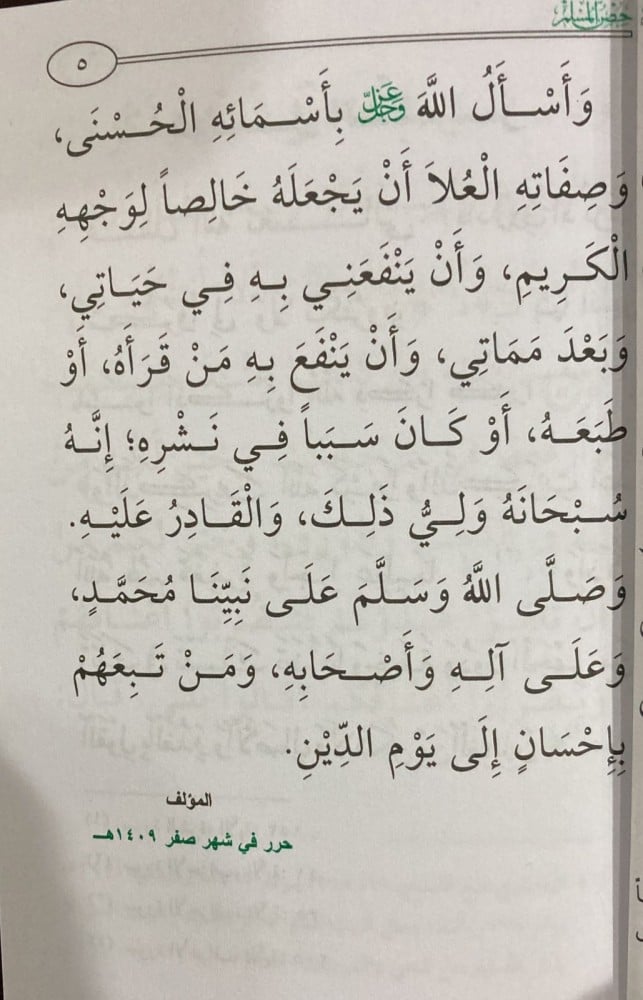 حصن المسلم
٥
وَأَسْـأَلُ اللَّهَ عَزَّ وَجَلَّ بِأَسْـمَـائِهِ الْحُـسْـنَى،
وَصِفَاتِهِ الْعُلاَ أَنْ يَجْعَلَهُ خَالِصاً لِوَجْهِهِ
الْكَـرِيمِ، وَأَنْ يَنْفَعَنِـي بِـهِ فِـي حَيَـاتِي،
وَبَعْدَ مَمَاتِي، وَأَنْ يَنْفَعَ بِهِ مَنْ قَرَأَهُ، أَوْ
طَبَعَـهُ، أَوْ كَـانَ سَـبَباً فِـي نَـشْرِهِ؛ إِنَّـهُ
سُـبْحَانَهُ وَلِـيُّ ذَلِـكَ، وَالْقَـادِرُ عَلَيْـهِ.
وَصَـلَّى اللَّهُ وَسَـلَّمَ عَلَـى نَبِيِّنَـا مُحَمَّـدٍ،
وَعَلَـى آلِـهِ وَأَصْـحَابِهِ، وَمَـنْ تَـبِعَهُمْ
بِإِحْسَانٍ إِلَى يَوْمِ الدِّيْنِ.
المؤلف
حرر في شهر صفر ١٤٠٩هـ